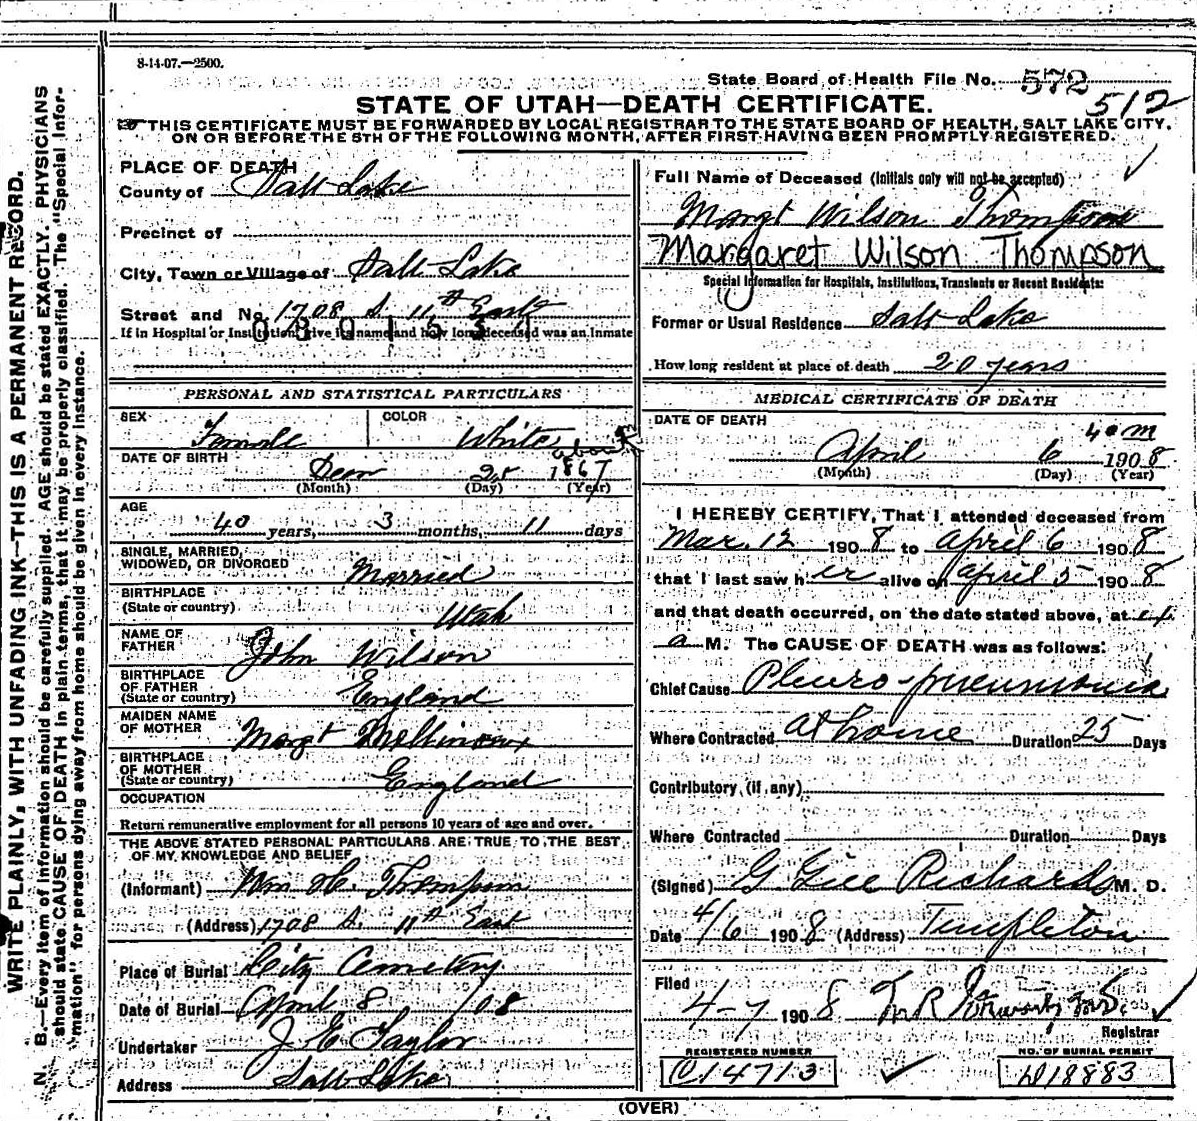 8-14-07.—2500.
State Board of Health File No. 572
512
STATE OF UTAH—DEATH CERTIFICATE.
THIS CERTIFICATE MUST BE FORWARDED BY LOCAL REGISTRAR TO THE STATE BOARD OF HEALTH, SALT LAKE CITY,
ON OR BEFORE THE 5TH OF THE FOLLOWING MONTH, AFTER FIRST HAVING BEEN PROMPTLY REGISTERED.
WRITE PLAINLY, WITH UNFADING INK—THIS IS A PERMANENT RECORD.
N. B.—Every item of information should be carefully supplied. AGE should be stated EXACTLY. PHYSICIANS
should state CAUSE OF DEATH in plain terms, that it may be properly classified. The "Special Infor-
mation" for persons dying away from home should be given in every instance.
PLACE OF DEATH
County of Salt Lake
Precinct of
City, Town or Village of Salt Lake
Street and No. 1708 S. 11th East
If in Hospital or Institution, give its name and how long deceased was an inmate
PERSONAL AND STATISTICAL PARTICULARS
SEX Female COLOR White
about
DATE OF BIRTH Decm 25 1867
(Month) (Day) (Year)
AGE
40 years, 3 months, 11 days
SINGLE, MARRIED,
WIDOWED, OR DIVORCED Married
BIRTHPLACE
(State or country) Utah
NAME OF
FATHER John Wilson
BIRTHPLACE
OF FATHER
(State or country) England
MAIDEN NAME
OF MOTHER Margt
BIRTHPLACE
OF MOTHER
(State or country) England
OCCUPATION
Return remunerative employment for all persons 10 years of age and over.
THE ABOVE STATED PERSONAL PARTICULARS ARE TRUE TO THE BEST
OF MY KNOWLEDGE AND BELIEF
(Informant) Wm H. Thompson
(Address) 1708 S. 11th East
Place of Burial City Cemetery
Date of Burial April 8 /08
Undertaker J. E. Taylor
Address Salt Lake
Full Name of Deceased (Initials only will not be accepted)
Margt Wilson Thompson
Margaret Wilson Thompson
Special Information for Hospitals, Institutions, Transients or Recent Residents:
Former or Usual Residence Salt Lake
How long resident at place of death 20 years
MEDICAL CERTIFICATE OF DEATH
DATE OF DEATH 4 am
April 6 1908
(Month) (Day) (Year)
I HEREBY CERTIFY, That I attended deceased from
Mar. 12 1908 to April 6 1908
that I last saw her alive on April 5 1908
and that death occurred, on the date stated above, at 4
a M. The CAUSE OF DEATH was as follows:
Chief Cause Pleuro-pneumonia
Where Contracted at home Duration 25 Days
Contributory (if any)
Where Contracted Duration Days
(Signed) G. Gill Richards M. D.
Date 4/6 1908 (Address) Templeton
Filed
4-7 1908
Registrar
REGISTERED NUMBER
C14713
NO. OF BURIAL PERMIT
D18883
(OVER)